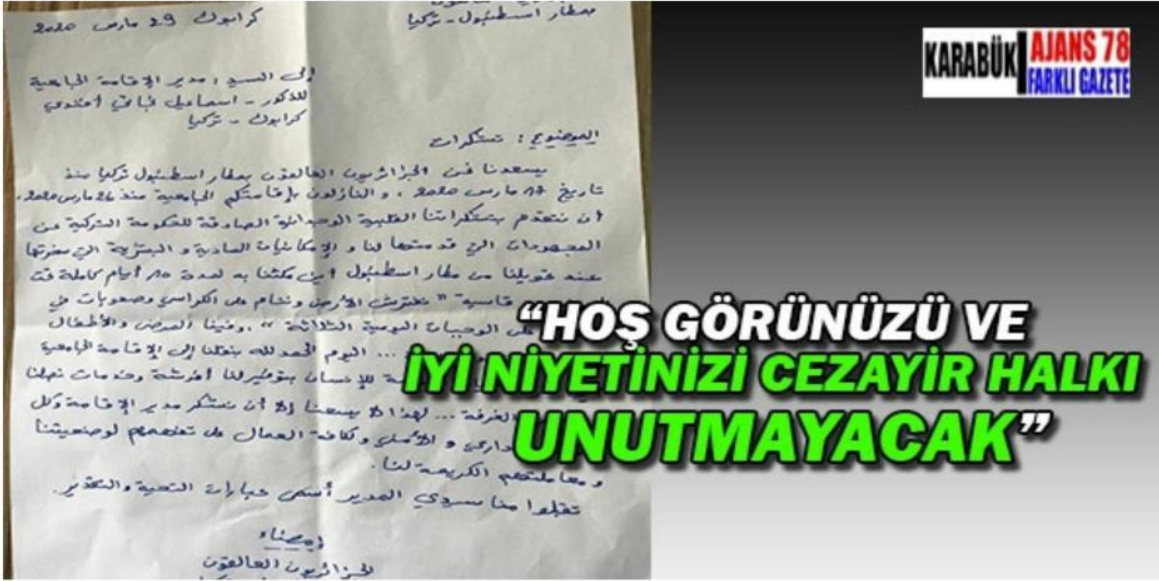 بمطار اسطنبول - تركيا
كرابوك 29 مارس 2020
إلى السيد : مدير الإقامة الجامعية
للذكور - اسماعيل أفندي
كرابوك - تركيا
الموضوع : تشكرات
يسعدنا نحن الجزائريون العالقون بمطار اسطنبول تركيا منذ
تاريخ 17 مارس 2020 ، والنازلون بإقامتكم الجامعية منذ 26 مارس 2020،
أن نتقدم بتشكراتنا القلبية الوجدانية الصادقة للحكومة التركية عن
المجهودات التي قدمتها لنا و الإمكانيات المادية و البشرية التي سخرتها
عند تحويلنا من مطار اسطنبول أين مكثنا به لمدة 10 أيام كاملة تحت
قاسية " نفترش الأرض وننام على الكراسي وصعوبات في
على الوجبات اليومية الثلاثة " . وفينا المرضى والأطفال
... اليوم الحمد لله بنقلنا إلى الإقامة الجامعية
للإنسان بتوفير لنا أفرشة وخدمات
الغرفة ... لهذا لا يسعنا إلا أن نشكر مدير الإقامة وكل
و الأمني وكافة العمال على تفهمهم لوضعيتنا
ومعاملتهم الكريمة لنا.
تقبلوا منا سيدي المدير أسمى عبارات التحية والتقدير.
إمضاء
الجزائريون العالقون
KARABÜK AJANS 78
FARKLI GAZETE
“HOŞ GÖRÜNÜZÜ VE
İYİ NİYETİNİZİ CEZAYİR HALKI
UNUTMAYACAK”